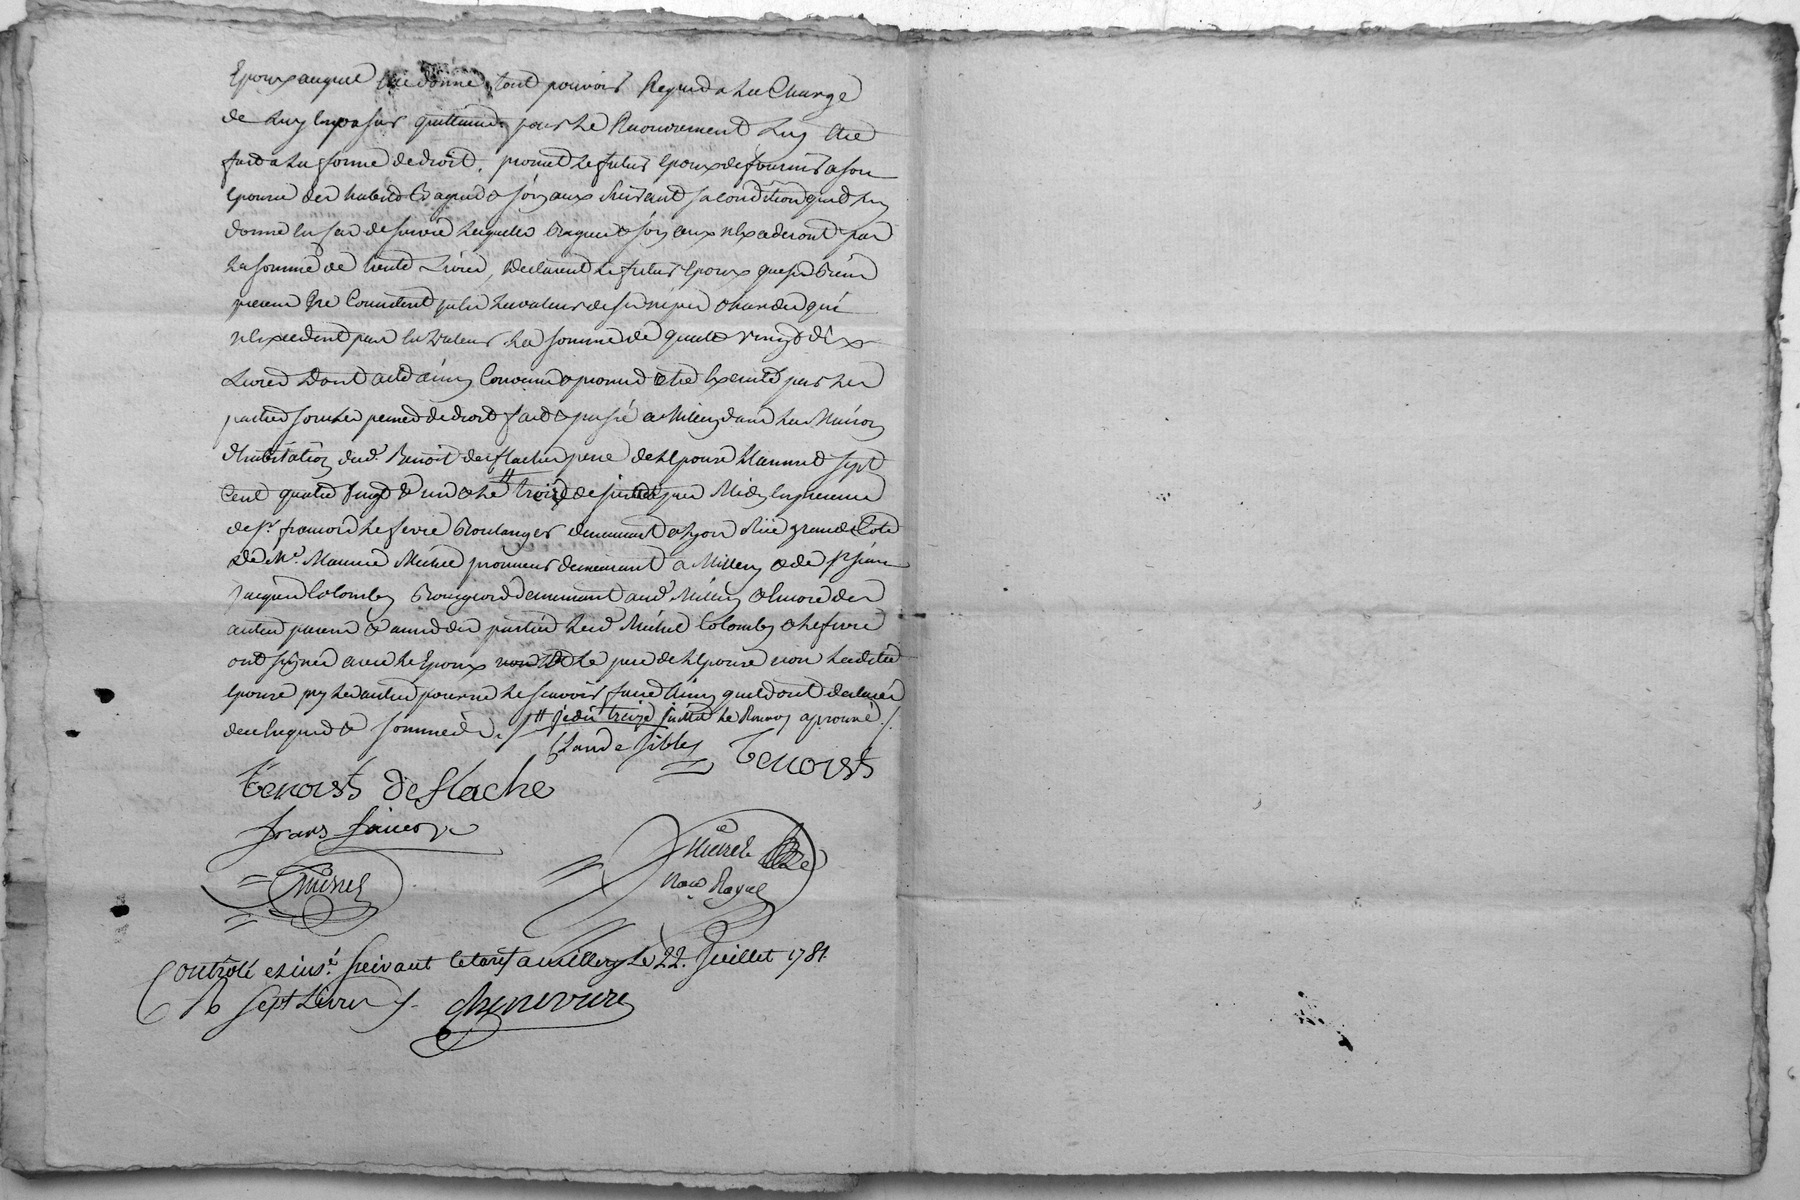 Epoux auquel elle donne tout pouvoir Requis a La Charge
de Luy en passer quittance pour Le Recouvrement Luy etre
fait a La forme de droit. promet Le futur epoux de fournir a son
epouse des habits Bagues & joyaux suivant sa condition quil Luy
donne en cas de survie Lesquels bagues & joyaux nexcederont pas
La somme de trente Livres, declarent Les futurs epoux que ses biens
nexcedent pas en valeur La somme de quatre vingt dix
Livres Dont acte ainsy Convenu & promis etre Executé par Les
parties sous Les peines de droit fait & passé a Millery dans La Maison
d'habitation dud. Benoit deflache pere de l'epouse L'an mil sept
Cent quatre vingt & un & Le # treize de juillet avant Midy en presence
de Sr. francois Lefevre Boulanger demeurant a Lyon rüe grande Cote
de Me. Maurice Michel procureur demeurant a Millery & de Sr jean
jacques Colomby Bourgeois demeurant aud. Millery & encore des
autres parens & amis des parties Lesd. Michel Colomby & Lefevre
ont signés avec Le Epoux Le pere de l'Epouse non Ladite
epouse ny Les autres pour ne Le scavoir faire Ainsy quils ont declarés
de ce Requis & sommés. # je dis treize juillet Le Renvoy aprouvé ./.
Claude
Benoist
Benoist deflache
Michel
Nore Royal
Controlé et ins.é suivant le tarif a millery Le 22. Juillet 1781.
R sept Livres ./. Cheneviere